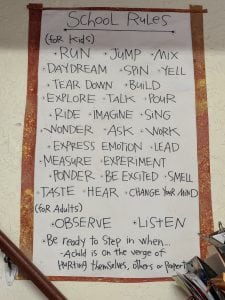 School Rules
(for Kids)
• RUN • JUMP • MIX
• DAYDREAM • SPIN • YELL
• TEAR DOWN • BUILD
• EXPLORE • TALK • POUR
• RIDE • IMAGINE • SING
• WONDER • ASK • WORK
• EXPRESS EMOTION • LEAD
• MEASURE • EXPERIMENT
• PONDER • BE EXCITED • SMELL
• TASTE • HEAR • CHANGE YOUR MIND
(for Adults)
• OBSERVE • LISTEN
• Be ready to Step in when...
-A child is on the verge of
HURTING themselves, others or Property